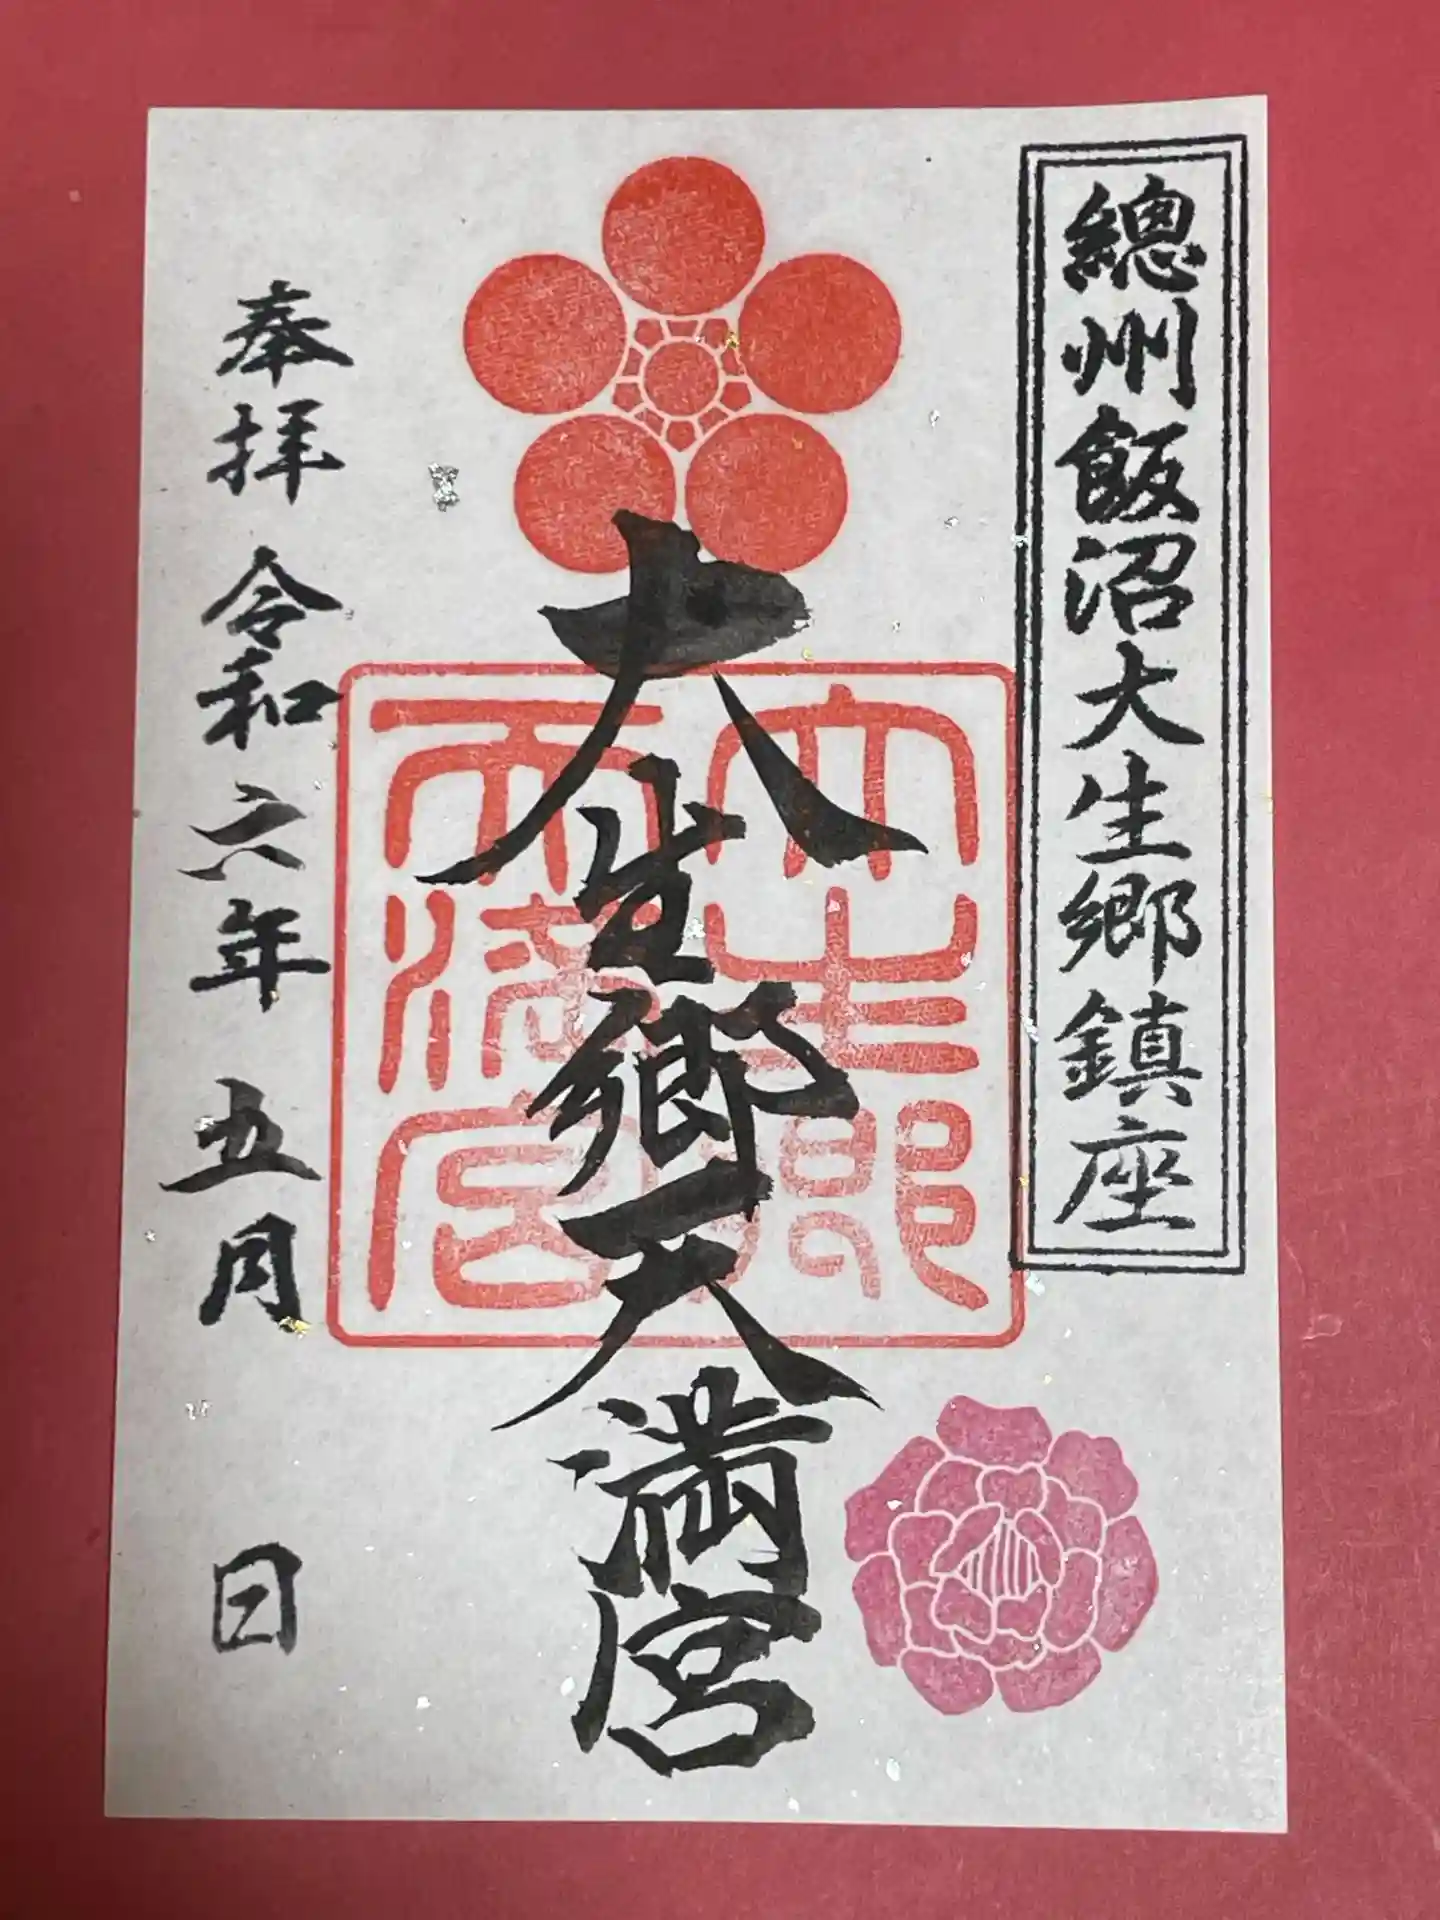 總州飯沼大生郷鎮座
大生郷天満宮
大生郷
天満宮
奉拝 令和六年 五月 日